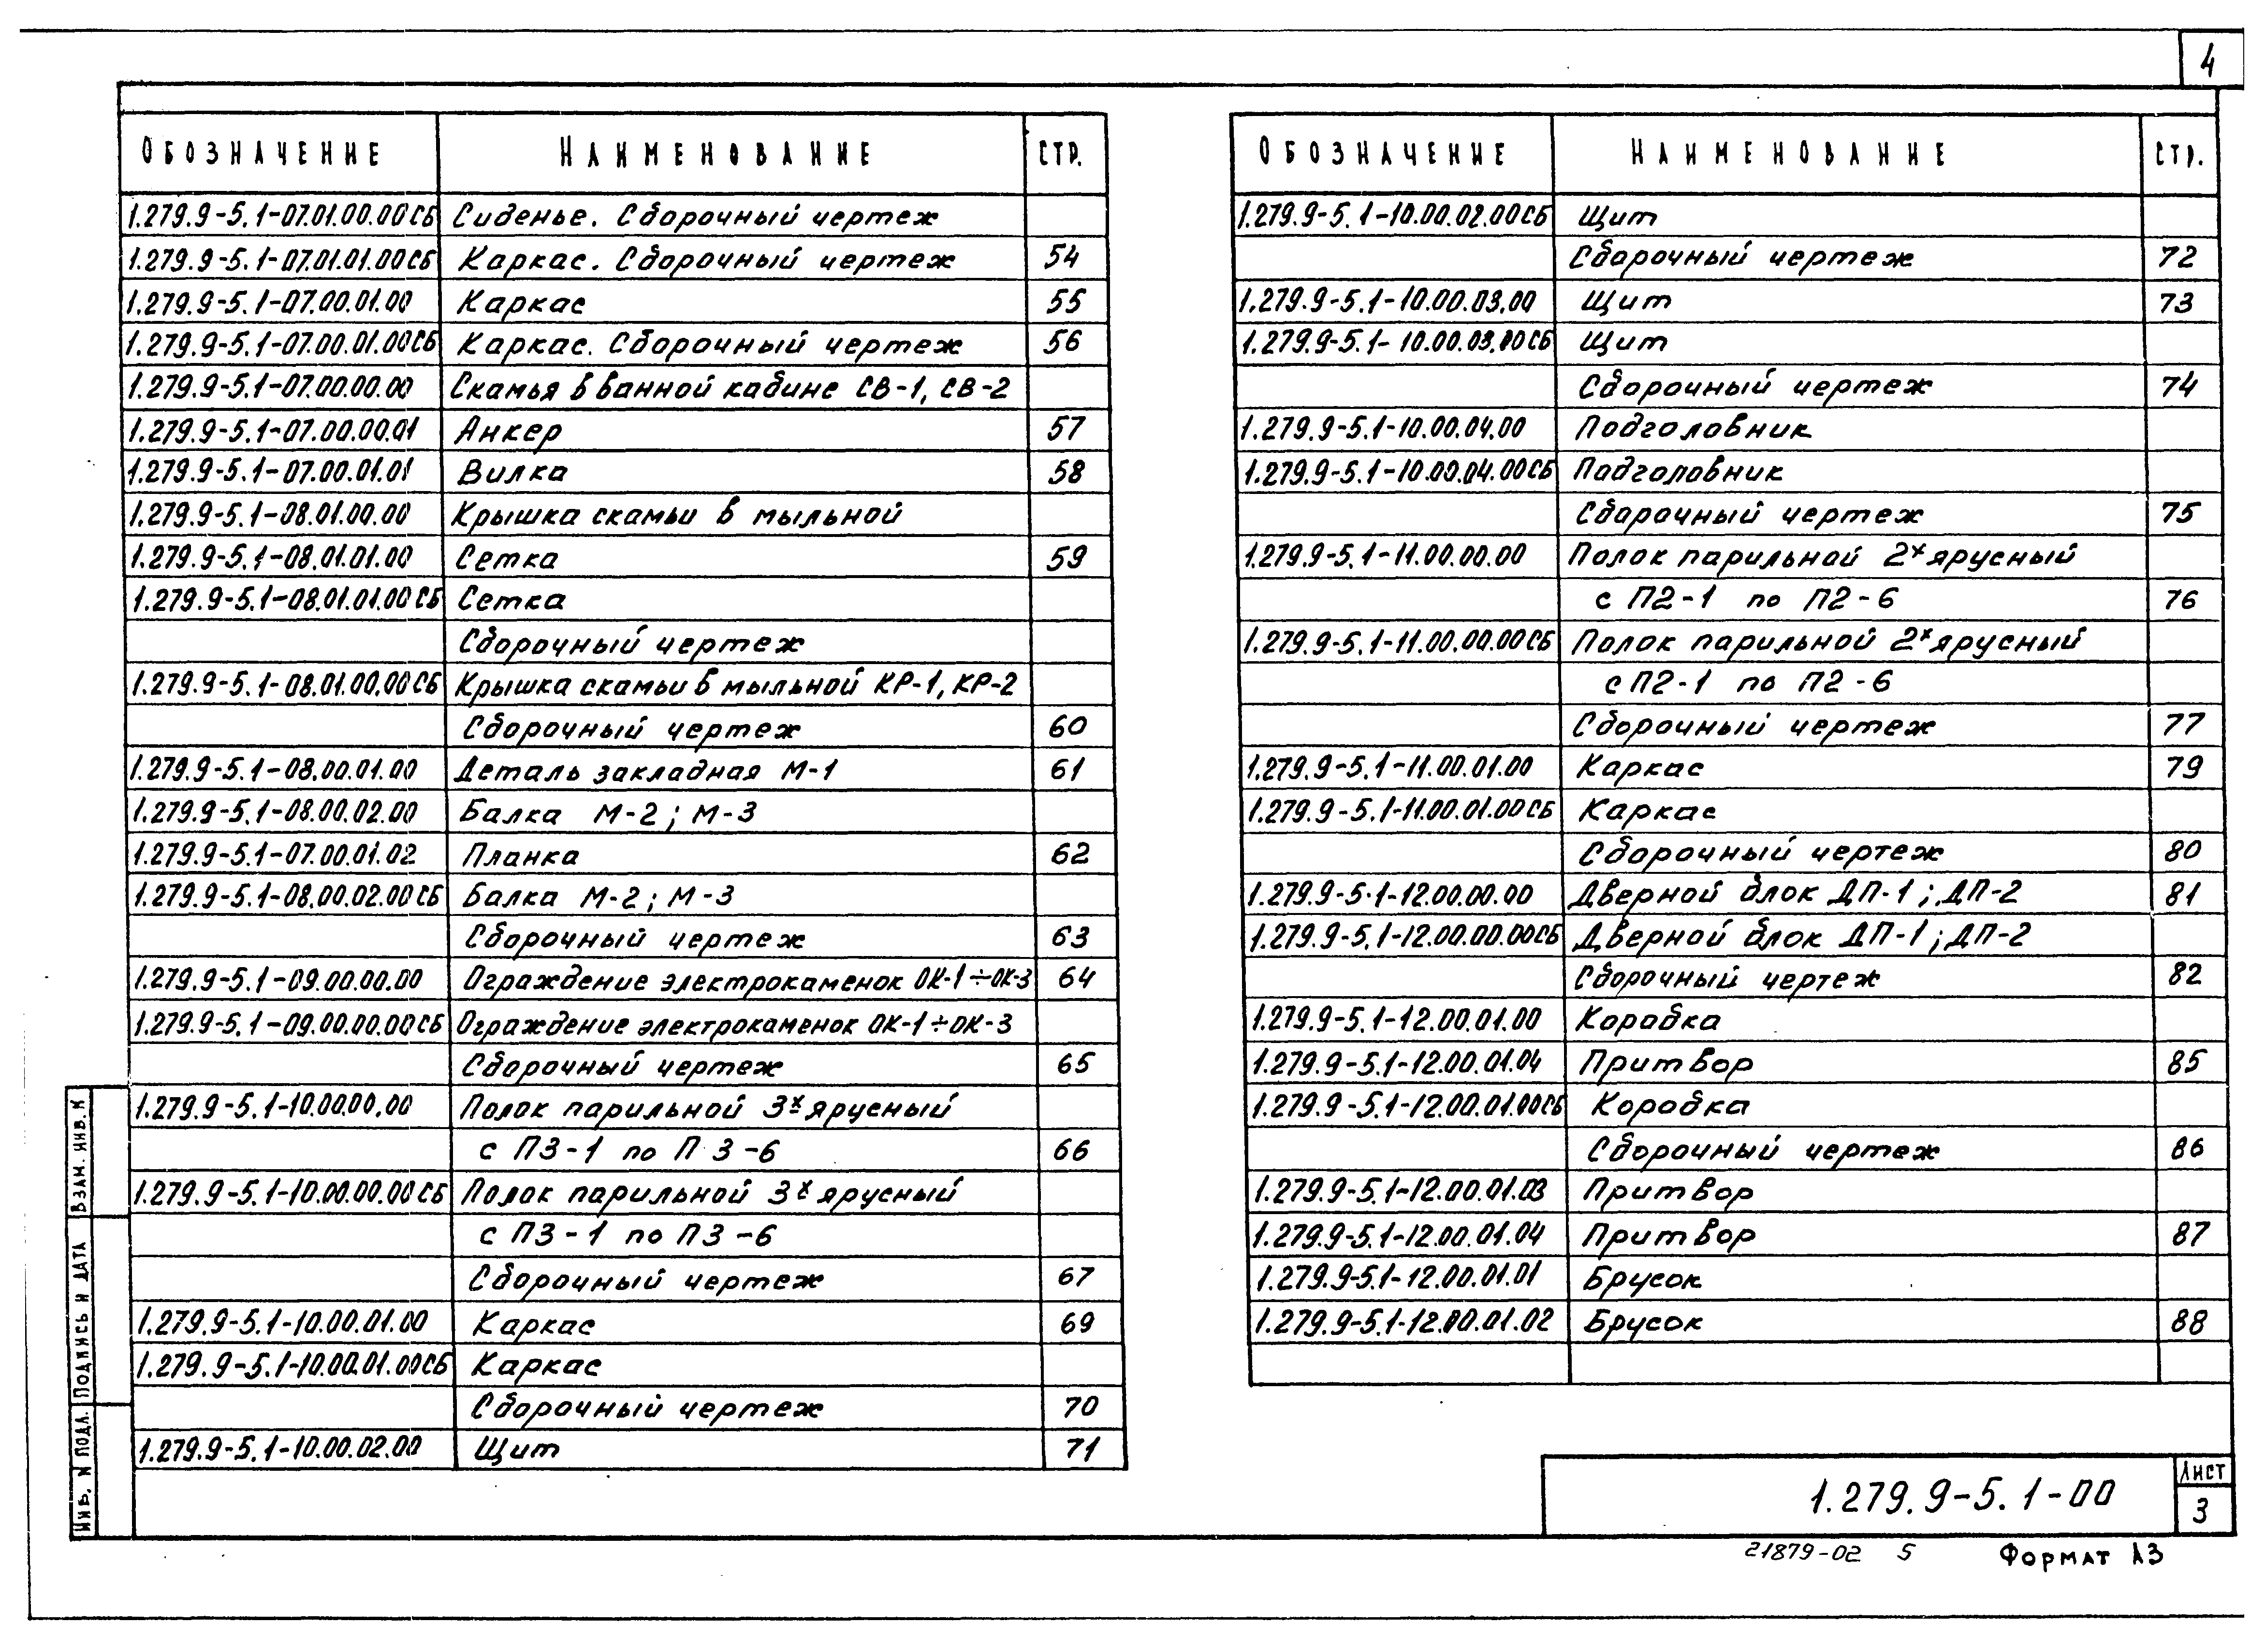 4
ОБОЗНАЧЕНИЕ НАИМЕНОВАНИЕ СТР.
1.279.9-5.1-07.01.00.00СБ Сиденье. Сборочный чертеж
1.279.9-5.1-07.01.01.00СБ Каркас. Сборочный чертеж 54
1.279.9-5.1-07.00.01.00 Каркас 55
1.279.9-5.1-07.00.01.00СБ Каркас. Сборочный чертеж 56
1.279.9-5.1-07.00.00.00 Скамья в ванной кабине СВ-1, СВ-2
1.279.9-5.1-07.00.00.01 Анкер 57
1.279.9-5.1-07.00.01.01 Вилка 58
1.279.9-5.1-08.01.00.00 Крышка скамьи в мыльной
1.279.9-5.1-08.01.01.00 Сетка 59
1.279.9-5.1-08.01.01.00СБ Сетка
Сборочный чертеж
1.279.9-5.1-08.01.00.00СБ Крышка скамьи в мыльной КР-1, КР-2
Сборочный чертеж 60
1.279.9-5.1-08.00.01.00 Деталь закладная М-1 61
1.279.9-5.1-08.00.02.00 Балка М-2; М-3
1.279.9-5.1-07.00.01.02 Планка 62
1.279.9-5.1-08.00.02.00СБ Балка М-2; М-3
Сборочный чертеж 63
1.279.9-5.1-09.00.00.00 Ограждение электрокаменок ОК-1÷ОК-3 64
1.279.9-5.1-09.00.00.00СБ Ограждение электрокаменок ОК-1÷ОК-3
Сборочный чертеж 65
1.279.9-5.1-10.00.00.00 Полок парильной 3х ярусный
с П3-1 по П3-6 66
1.279.9-5.1-10.00.00.00СБ Полок парильной 3х ярусный
с П3-1 по П3-6
Сборочный чертеж 67
1.279.9-5.1-10.00.01.00 Каркас 69
1.279.9-5.1-10.00.01.00СБ Каркас
Сборочный чертеж 70
1.279.9-5.1-10.00.02.00 Щит 71
ОБОЗНАЧЕНИЕ НАИМЕНОВАНИЕ СТР.
1.279.9-5.1-10.00.02.00СБ Щит
Сборочный чертеж 72
1.279.9-5.1-10.00.03.00 Щит 73
1.279.9-5.1-10.00.03.00СБ Щит
Сборочный чертеж 74
1.279.9-5.1-10.00.04.00 Подголовник
1.279.9-5.1-10.00.04.00СБ Подголовник
Сборочный чертеж 75
1.279.9-5.1-11.00.00.00 Полок парильной 2х ярусный
с П2-1 по П2-6 76
1.279.9-5.1-11.00.00.00СБ Полок парильной 2х ярусный
с П2-1 по П2-6
Сборочный чертеж 77
1.279.9-5.1-11.00.01.00 Каркас 79
1.279.9-5.1-11.00.01.00СБ Каркас
Сборочный чертеж 80
1.279.9-5.1-12.00.00.00 Дверной блок ДП-1; ДП-2 81
1.279.9-5.1-12.00.00.00СБ Дверной блок ДП-1; ДП-2
Сборочный чертеж 82
1.279.9-5.1-12.00.01.00 Коробка
1.279.9-5.1-12.00.01.04 Притвор 85
1.279.9-5.1-12.00.01.00СБ Коробка
Сборочный чертеж 86
1.279.9-5.1-12.00.01.03 Притвор
1.279.9-5.1-12.00.01.04 Притвор 87
1.279.9-5.1-12.00.01.01 Брусок
1.279.9-5.1-12.00.01.02 Брусок 88
ВЗАМ. ИНВ. №
ПОДПИСЬ И ДАТА
ИНВ. № ПОДЛ.
1.279.9-5.1-00
ЛИСТ
3
21879-02 5
ФОРМАТ А3